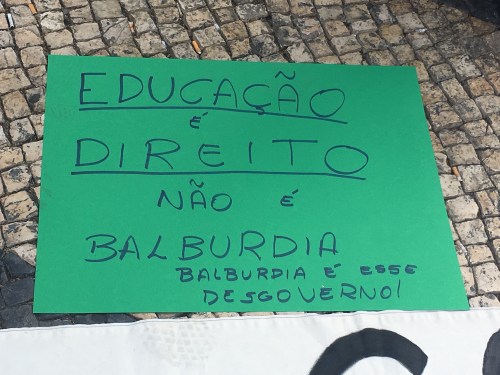 EDUCAÇÃO
É
DIREITO
NÃO É
BALBURDIA
BALBURDIA É ESSE
DESGOVERNO!